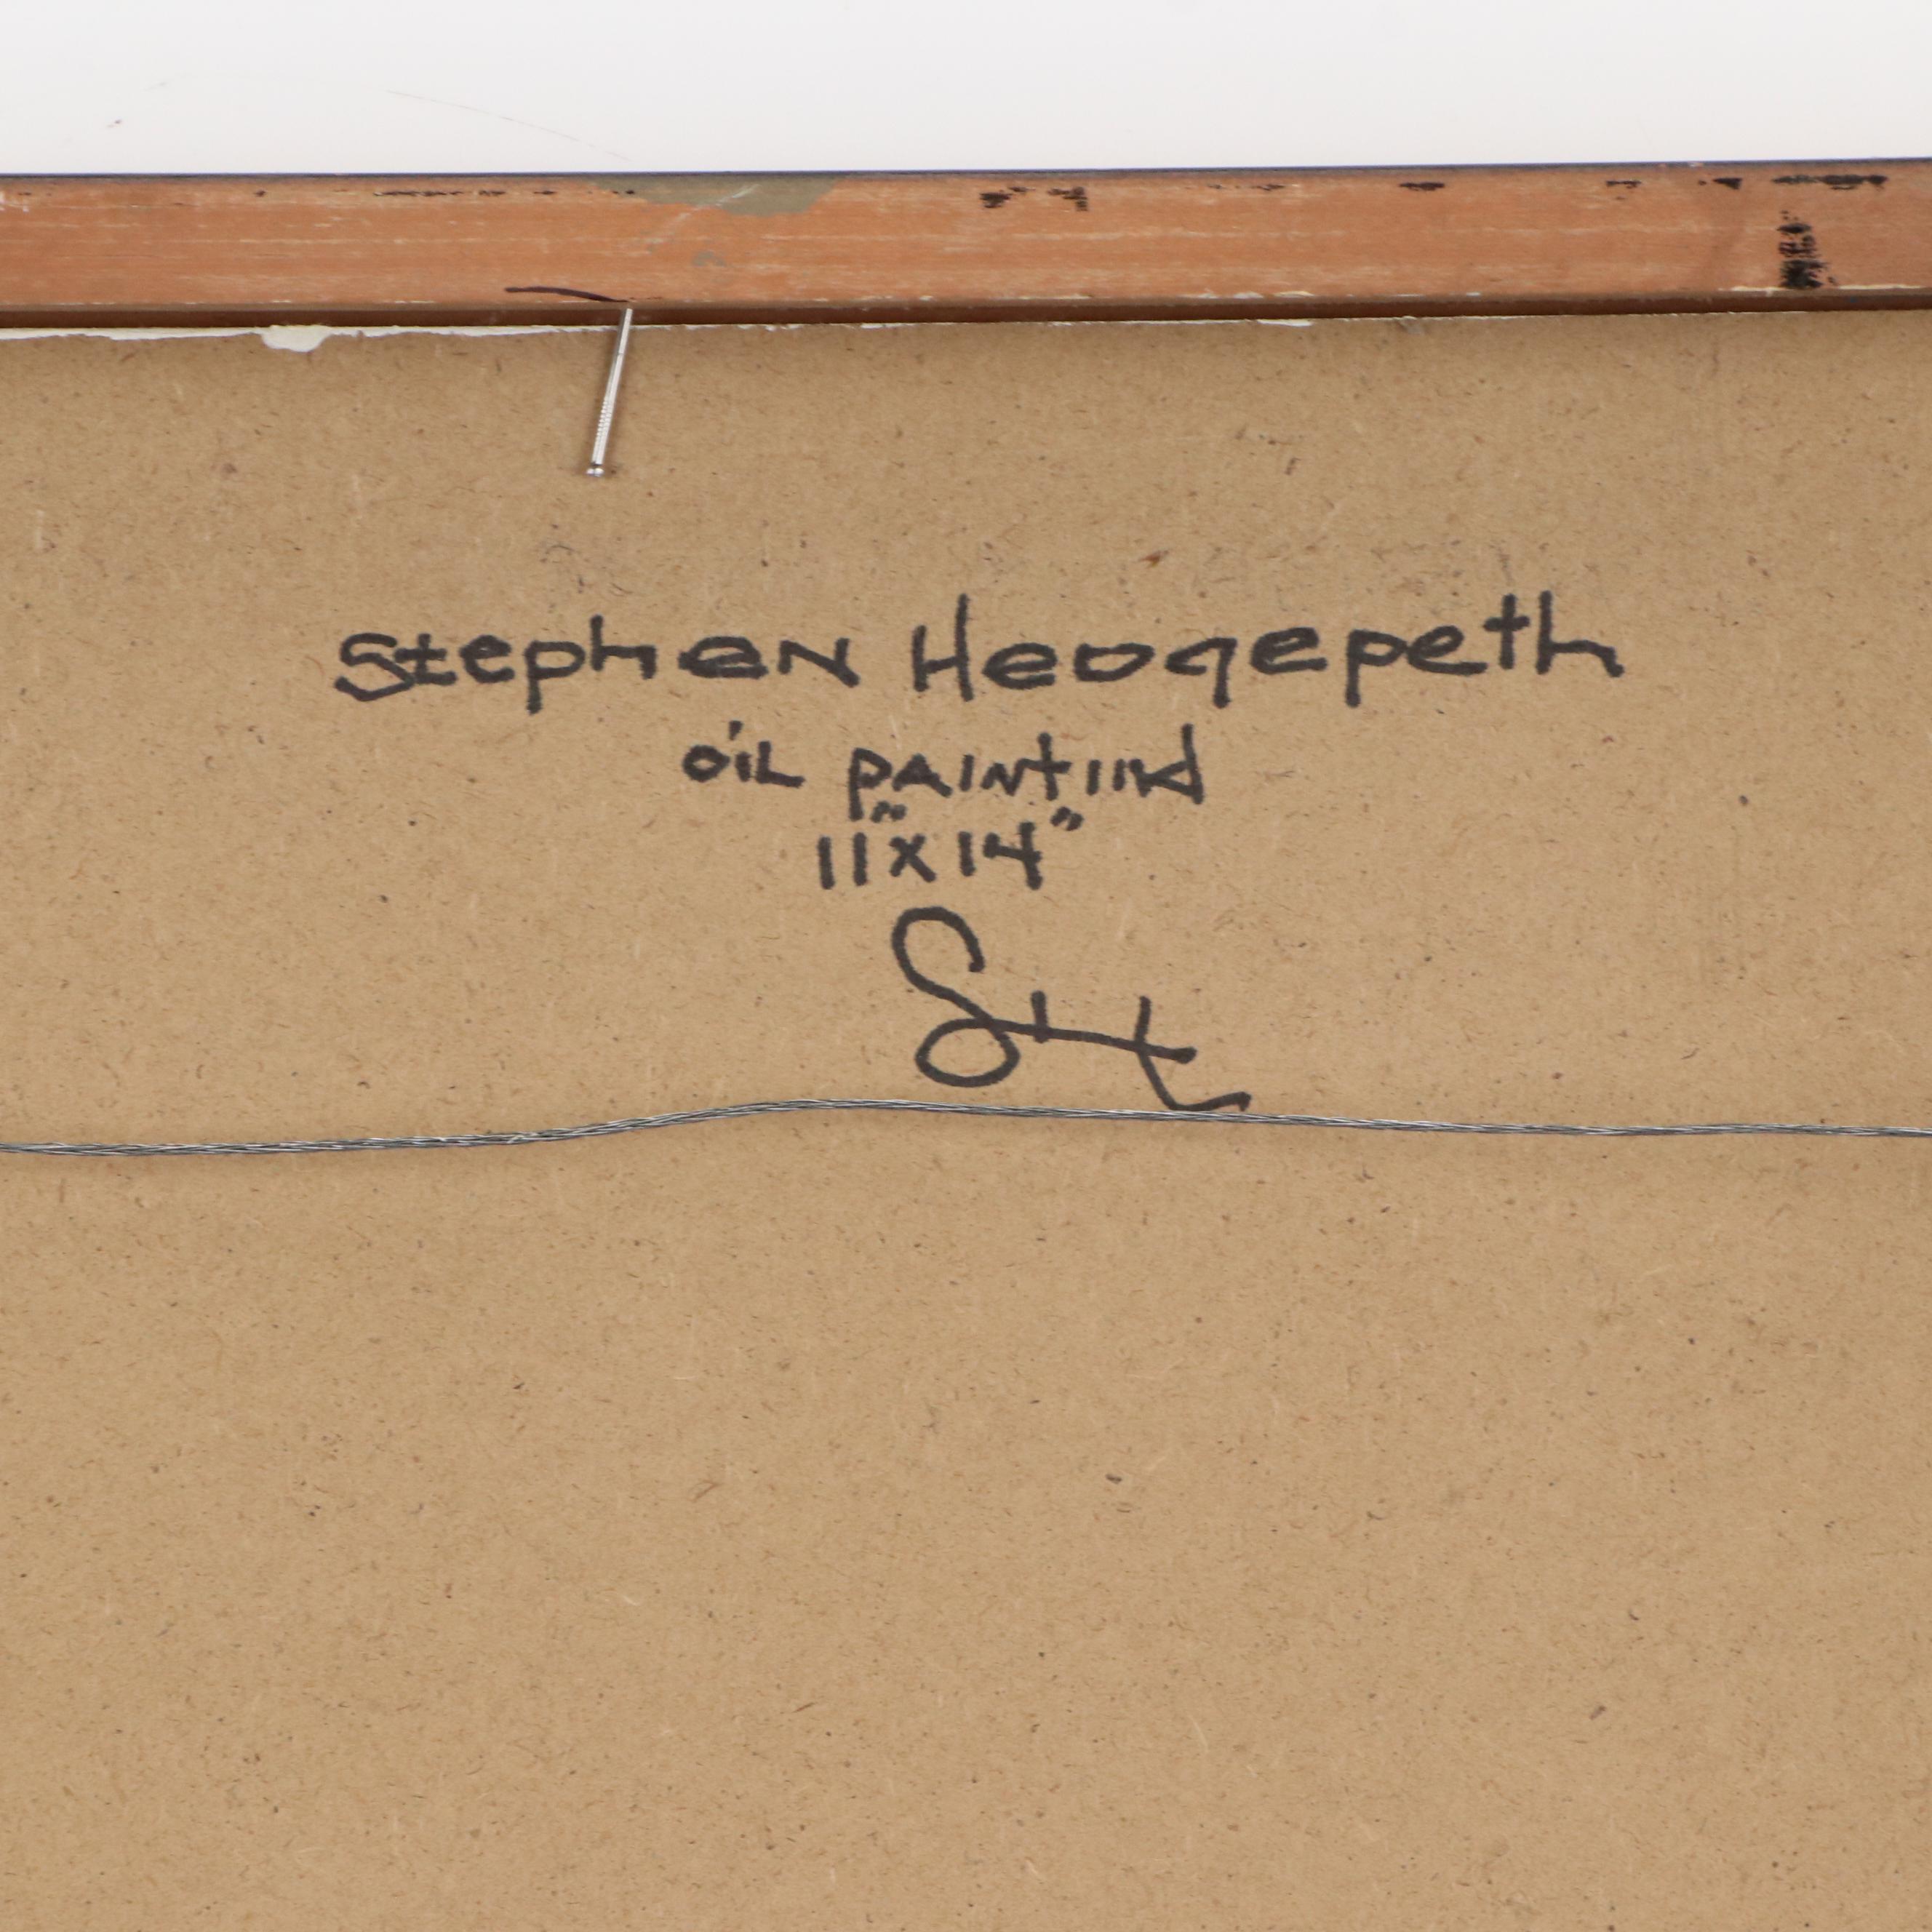 Stephen Hedgepeth
oil painting
11"x14"